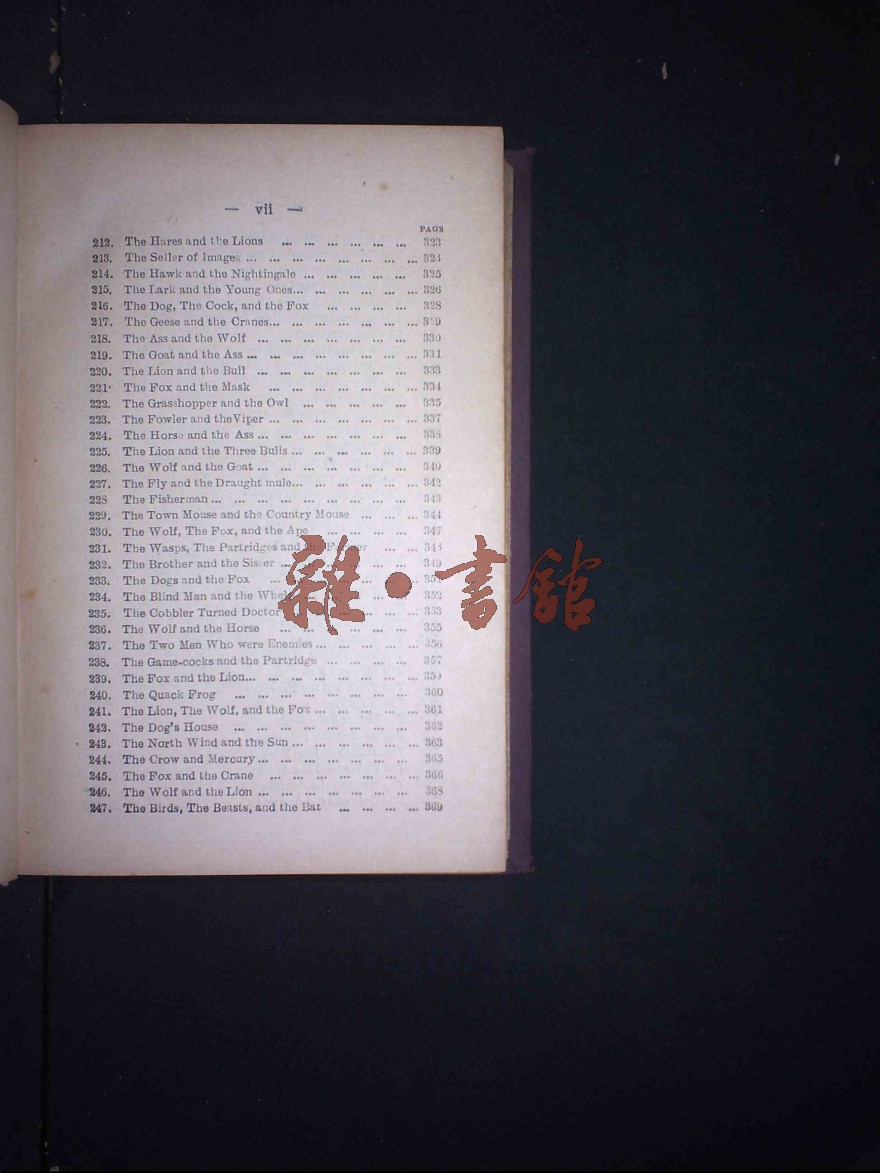 — vii —
PAGE
212. The Hares and the Lions ... ... ... ... ... ... 323
213. The Seller of Images ... ... ... ... ... ... ... ... 324
214. The Hawk and the Nightingale ... ... ... ... ... 325
215. The Lark and the Young Ones... ... ... ... ... ... 326
216. The Dog, The Cock, and the Fox ... ... ... ... 328
217. The Geese and the Cranes... ... ... ... ... ... ... 329
218. The Ass and the Wolf ... ... ... ... ... ... ... 330
219. The Goat and the Ass ... ... ... ... ... ... ... ... 331
220. The Lion and the Bull ... ... ... ... ... ... ... 333
221. The Fox and the Mask ... ... ... ... ... ... ... 334
222. The Grasshopper and the Owl ... ... ... ... ... 335
223. The Fowler and theViper ... ... ... ... ... ... ... 337
224. The Horse and the Ass ... ... ... ... ... ... ... 338
225. The Lion and the Three Bulls ... ... ... ... ... ... 339
226. The Wolf and the Goat ... ... ... ... ... ... ... 340
227. The Fly and the Draught mule... ... ... ... ... ... 342
228 The Fisherman ... ... ... ... ... ... ... ... ... 343
229. The Town Mouse and the Country Mouse ... ... ... 344
230. The Wolf, The Fox, and the Ape ... ... ... ... 347
231. The Wasps, The Partridges and the Farmer ... ... 348
232. The Brother and the Sister ... ... ... ... ... ... 349
233. The Dogs and the Fox ... ... ... ... ... ... ...
234. The Blind Man and the Whelp ... ... ... ... 352
235. The Cobbler Turned Doctor ... ... ... ... ... 353
236. The Wolf and the Horse ... ... ... ... ... ... 355
237. The Two Men Who were Enemies ... ... ... ... ... 356
238. The Game-cocks and the Partridge ... ... ... ... 357
239. The Fox and the Lion... ... ... ... ... ... ... ... 359
240. The Quack Frog ... ... ... ... ... ... ... ... 360
241. The Lion, The Wolf, and the Fox ... ... ... ... ... 361
242. The Dog's House ... ... ... ... ... ... ... ... 362
243. The North Wind and the Sun ... ... ... ... ... ... 363
244. The Crow and Mercury ... ... ... ... ... ... ... 365
245. The Fox and the Crane ... ... ... ... ... ... ... 366
246. The Wolf and the Lion ... ... ... ... ... ... ... 368
247. The Birds, The Beasts, and the Bat ... ... ... ... 369
雜•書館